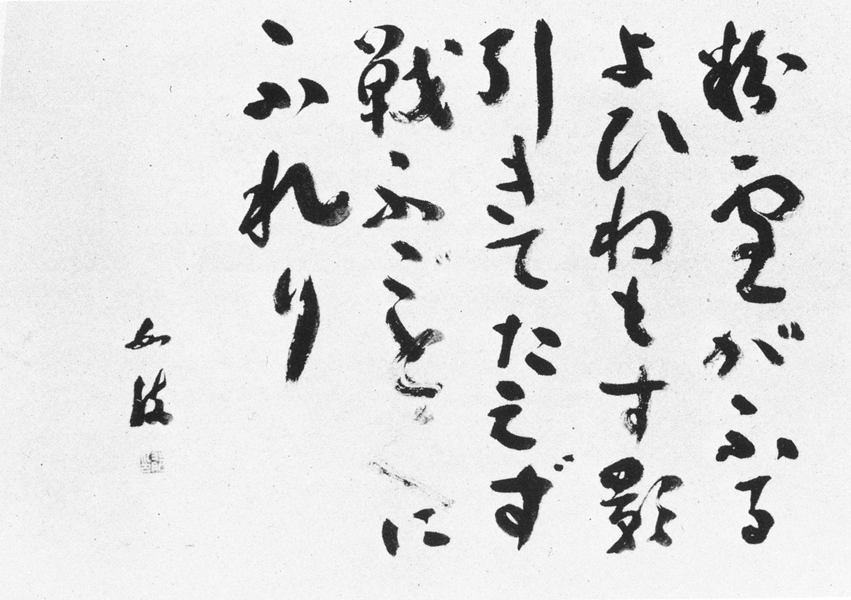 粉雪がふる
よひねもす影
引きてたえず
戦ふごとくに
ふれり